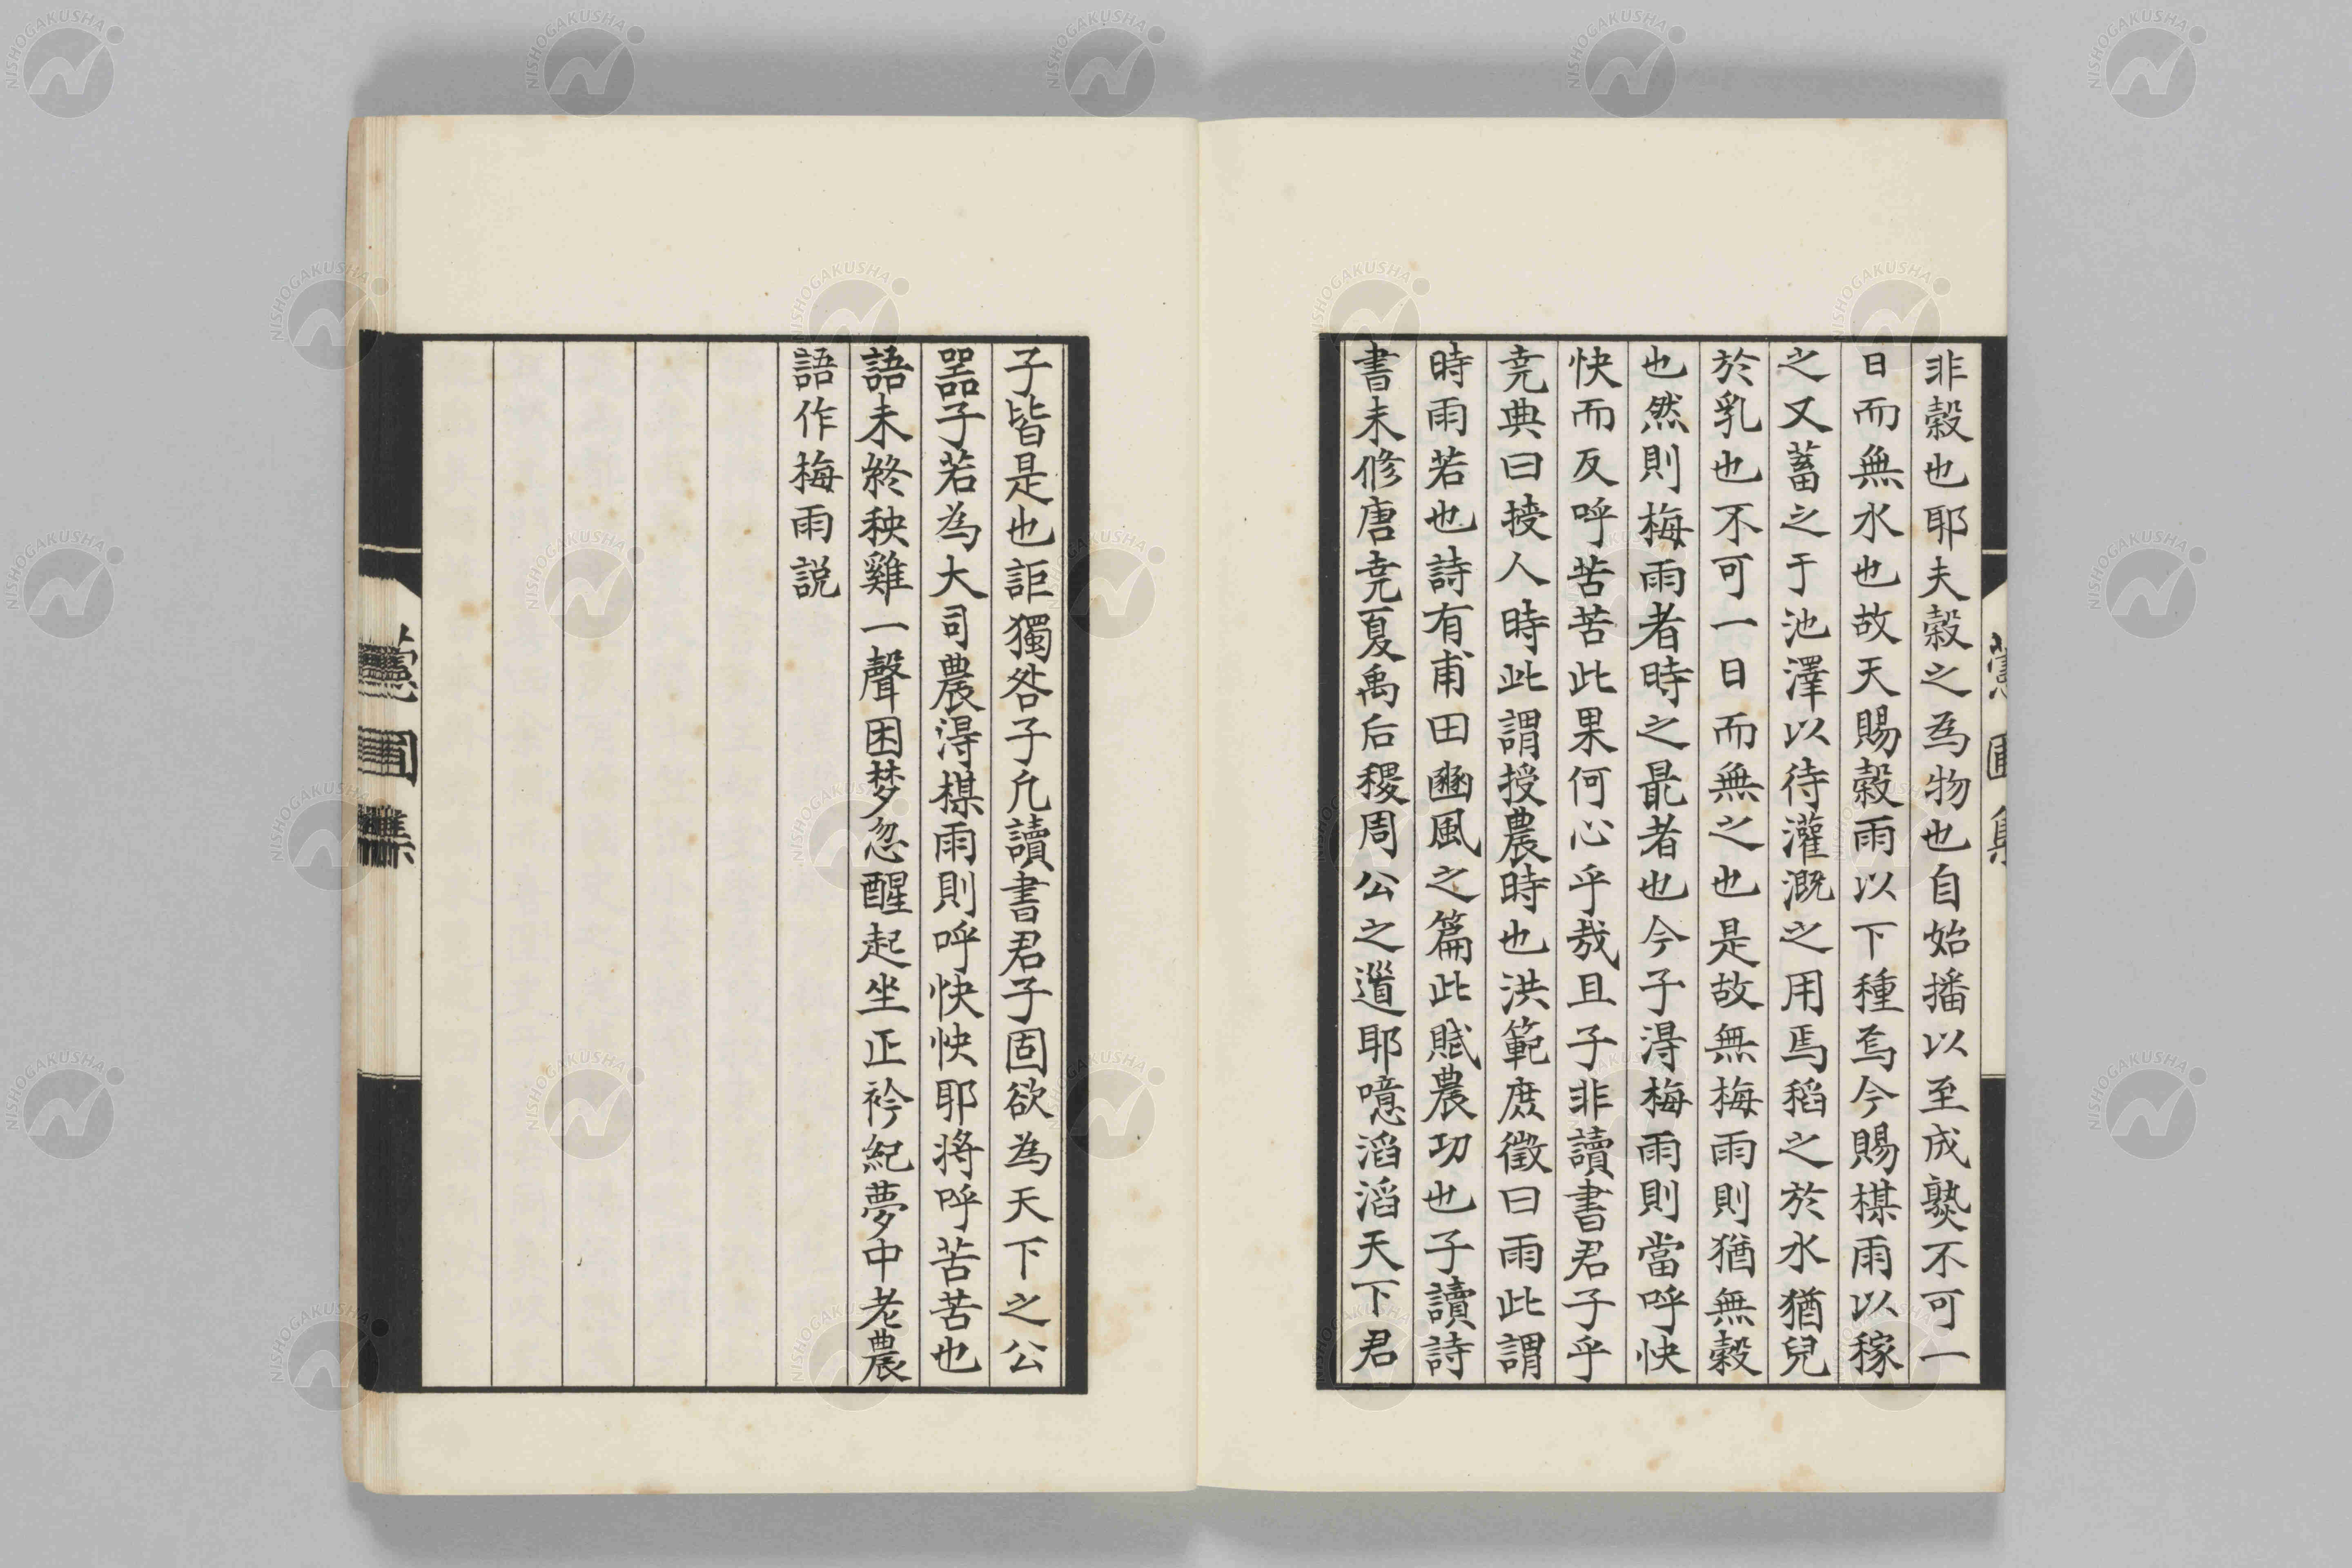 非穀也耶夫穀之為物也自始播以至成熟不可一
日而無水也故天賜穀雨以下種焉今賜楳雨以稼
之又蓄之于池澤以待灌漑之用焉稻之於水猶兒
於乳也不可一日而無之也是故無梅雨則猶無穀
也然則梅雨者時之最者也今子得梅雨則當呼快
快而反呼苦苦此果何心乎哉且子非讀書君子乎
堯典曰授人時此謂授農時也洪範庶徵曰雨此謂
時雨若也詩有甫田豳風之篇此賦農功也子讀詩
書未修唐堯夏禹后稷周公之道耶噫滔滔天下君
子皆是也詎獨咎子凢讀書君子固欲為天下之公
器子若為大司農得楳雨則呼快快耶将呼苦苦也
語未終秧雞一聲困梦忽醒起坐正衿紀夢中老農
語作梅雨説
圃集
NISHOGAKUSHA